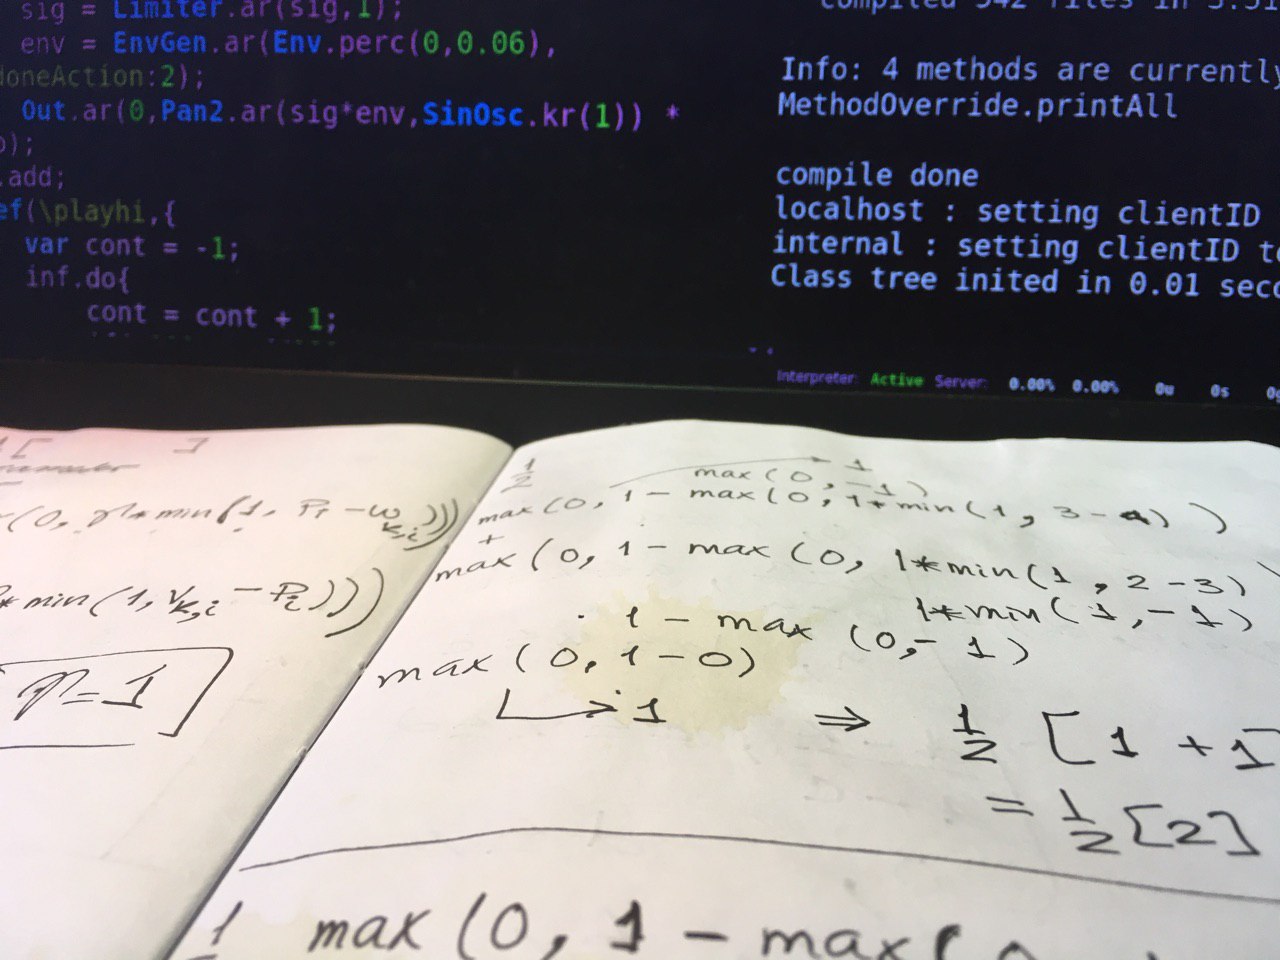 sig = Limiter.ar(sig,1);
env = EnvGen.ar(Env.perc(0,0.06),
doneAction:2);
Out.ar(0,Pan2.ar(sig*env,SinOsc.kr(1)) *
);
.add;
ef(\playhi,{
var cont = -1;
inf.do{
cont = cont + 1;
compiled 342 files in
Info: 4 methods are currently
MethodOverride.printAll
compile done
localhost : setting clientID
internal : setting clientID to
Class tree inited in 0.01 seco
Interpreter: Active Server: 0.00% 0.00% 0u 0s 0g
(0, γ*min(1, Pi - ωk,i)))
* min(1, Vk,i - Pi)))
γ=1
1/2
max(0, -1) 1
max(0, 1 - max(0, 1*min(1, 3-4) )
+
max(0, 1 - max(0, 1*min(1, 2-3)
1*min(1, -1)
1 - max (0, -1)
max(0, 1-0)
1 ⇒ 1/2 [1 + 1]
= 1/2 [2]
1 max(0, 1 - max(